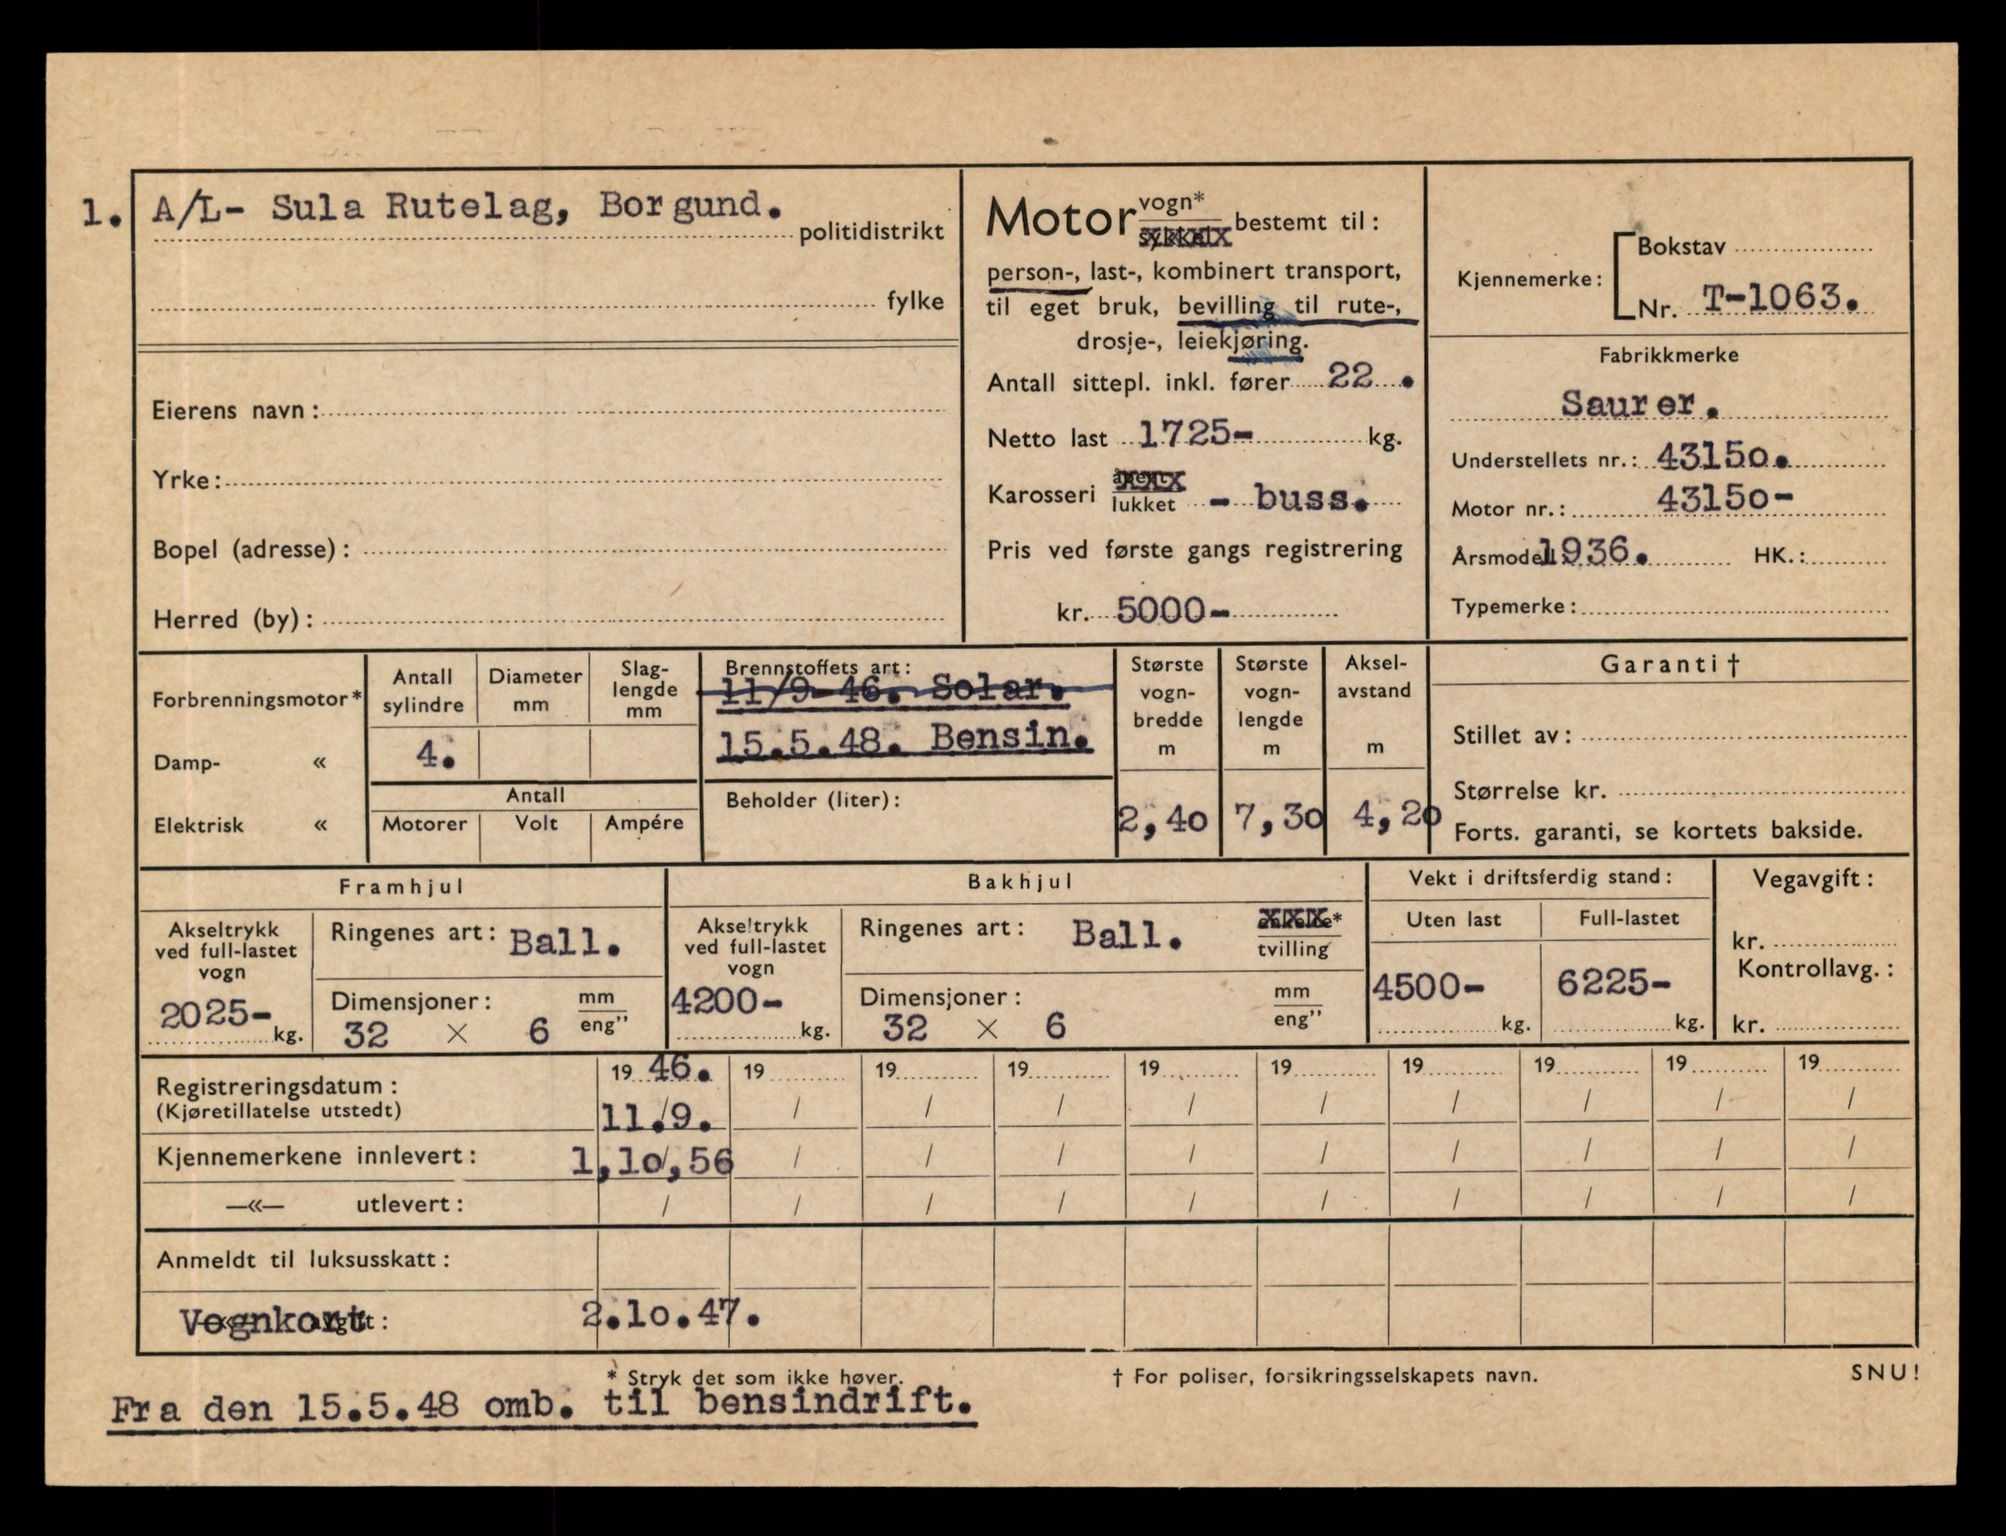 1. A/L- Sula Rutelag, Borgund. politidistrikt
fylke
Eierens navn:
Yrke:
Bopel (adresse):
Herred (by):
Motor vogn* bestemt til:
sykkel
person-, last-, kombinert transport,
til eget bruk, bevilling til rute-,
drosje-, leiekjøring.
Antall sittepl. inkl. fører 22 .
Netto last 1725- kg.
Karosseri åpent
lukket - buss.
Pris ved første gangs registrering
kr. 5000-
Kjennemerke: Bokstav
Nr. T-1063.
Fabrikkmerke
Saurer.
Understellets nr.: 43150.
Motor nr.: 43150-
Årsmodell 1936. HK.:
Typemerke:
Forbrenningsmotor*
Damp- «
Elektrisk «
Antall sylindre
4.
Diameter mm
Slag-
lengde
mm
Antall
Motorer Volt Ampére
Brennstoffets art:
11/9-46. Solar.
15.5.48. Bensin.
Beholder (liter):
Største
vogn-
bredde
m
2,40
Største
vogn-
lengde
m
7,30
Aksel-
avstand
m
4,20
Garanti†
Stillet av:
Størrelse kr.
Forts. garanti, se kortets bakside.
Framhjul
Akseltrykk
ved full-lastet
vogn
2025-
kg.
Ringenes art: Ball.
Dimensjoner: mm
32 × 6 eng"
Bakhjul
Akseltrykk
ved full-lastet
vogn
4200-
kg.
Ringenes art: Ball. enkelte*
tvilling
Dimensjoner: mm
32 × 6 eng"
Vekt i driftsferdig stand:
Uten last Full-lastet
4500- 6225-
kg. kg.
Vegavgift:
kr.
Kontrollavg.:
kr.
Registreringsdatum: 19 46. 19 19 19 19 19 19 19 19 19
(Kjøretillatelse utstedt) 11./9. / / / / / / / / /
Kjennemerkene innlevert: 1,10,56 / / / / / / / / /
—«— utlevert: / / / / / / / / / /
Anmeldt til luksusskatt:
Vognkort 2.10.47.
* Stryk det som ikke høver. † For poliser, forsikringsselskapets navn. SNU!
Fra den 15.5.48 omb. til bensindrift.